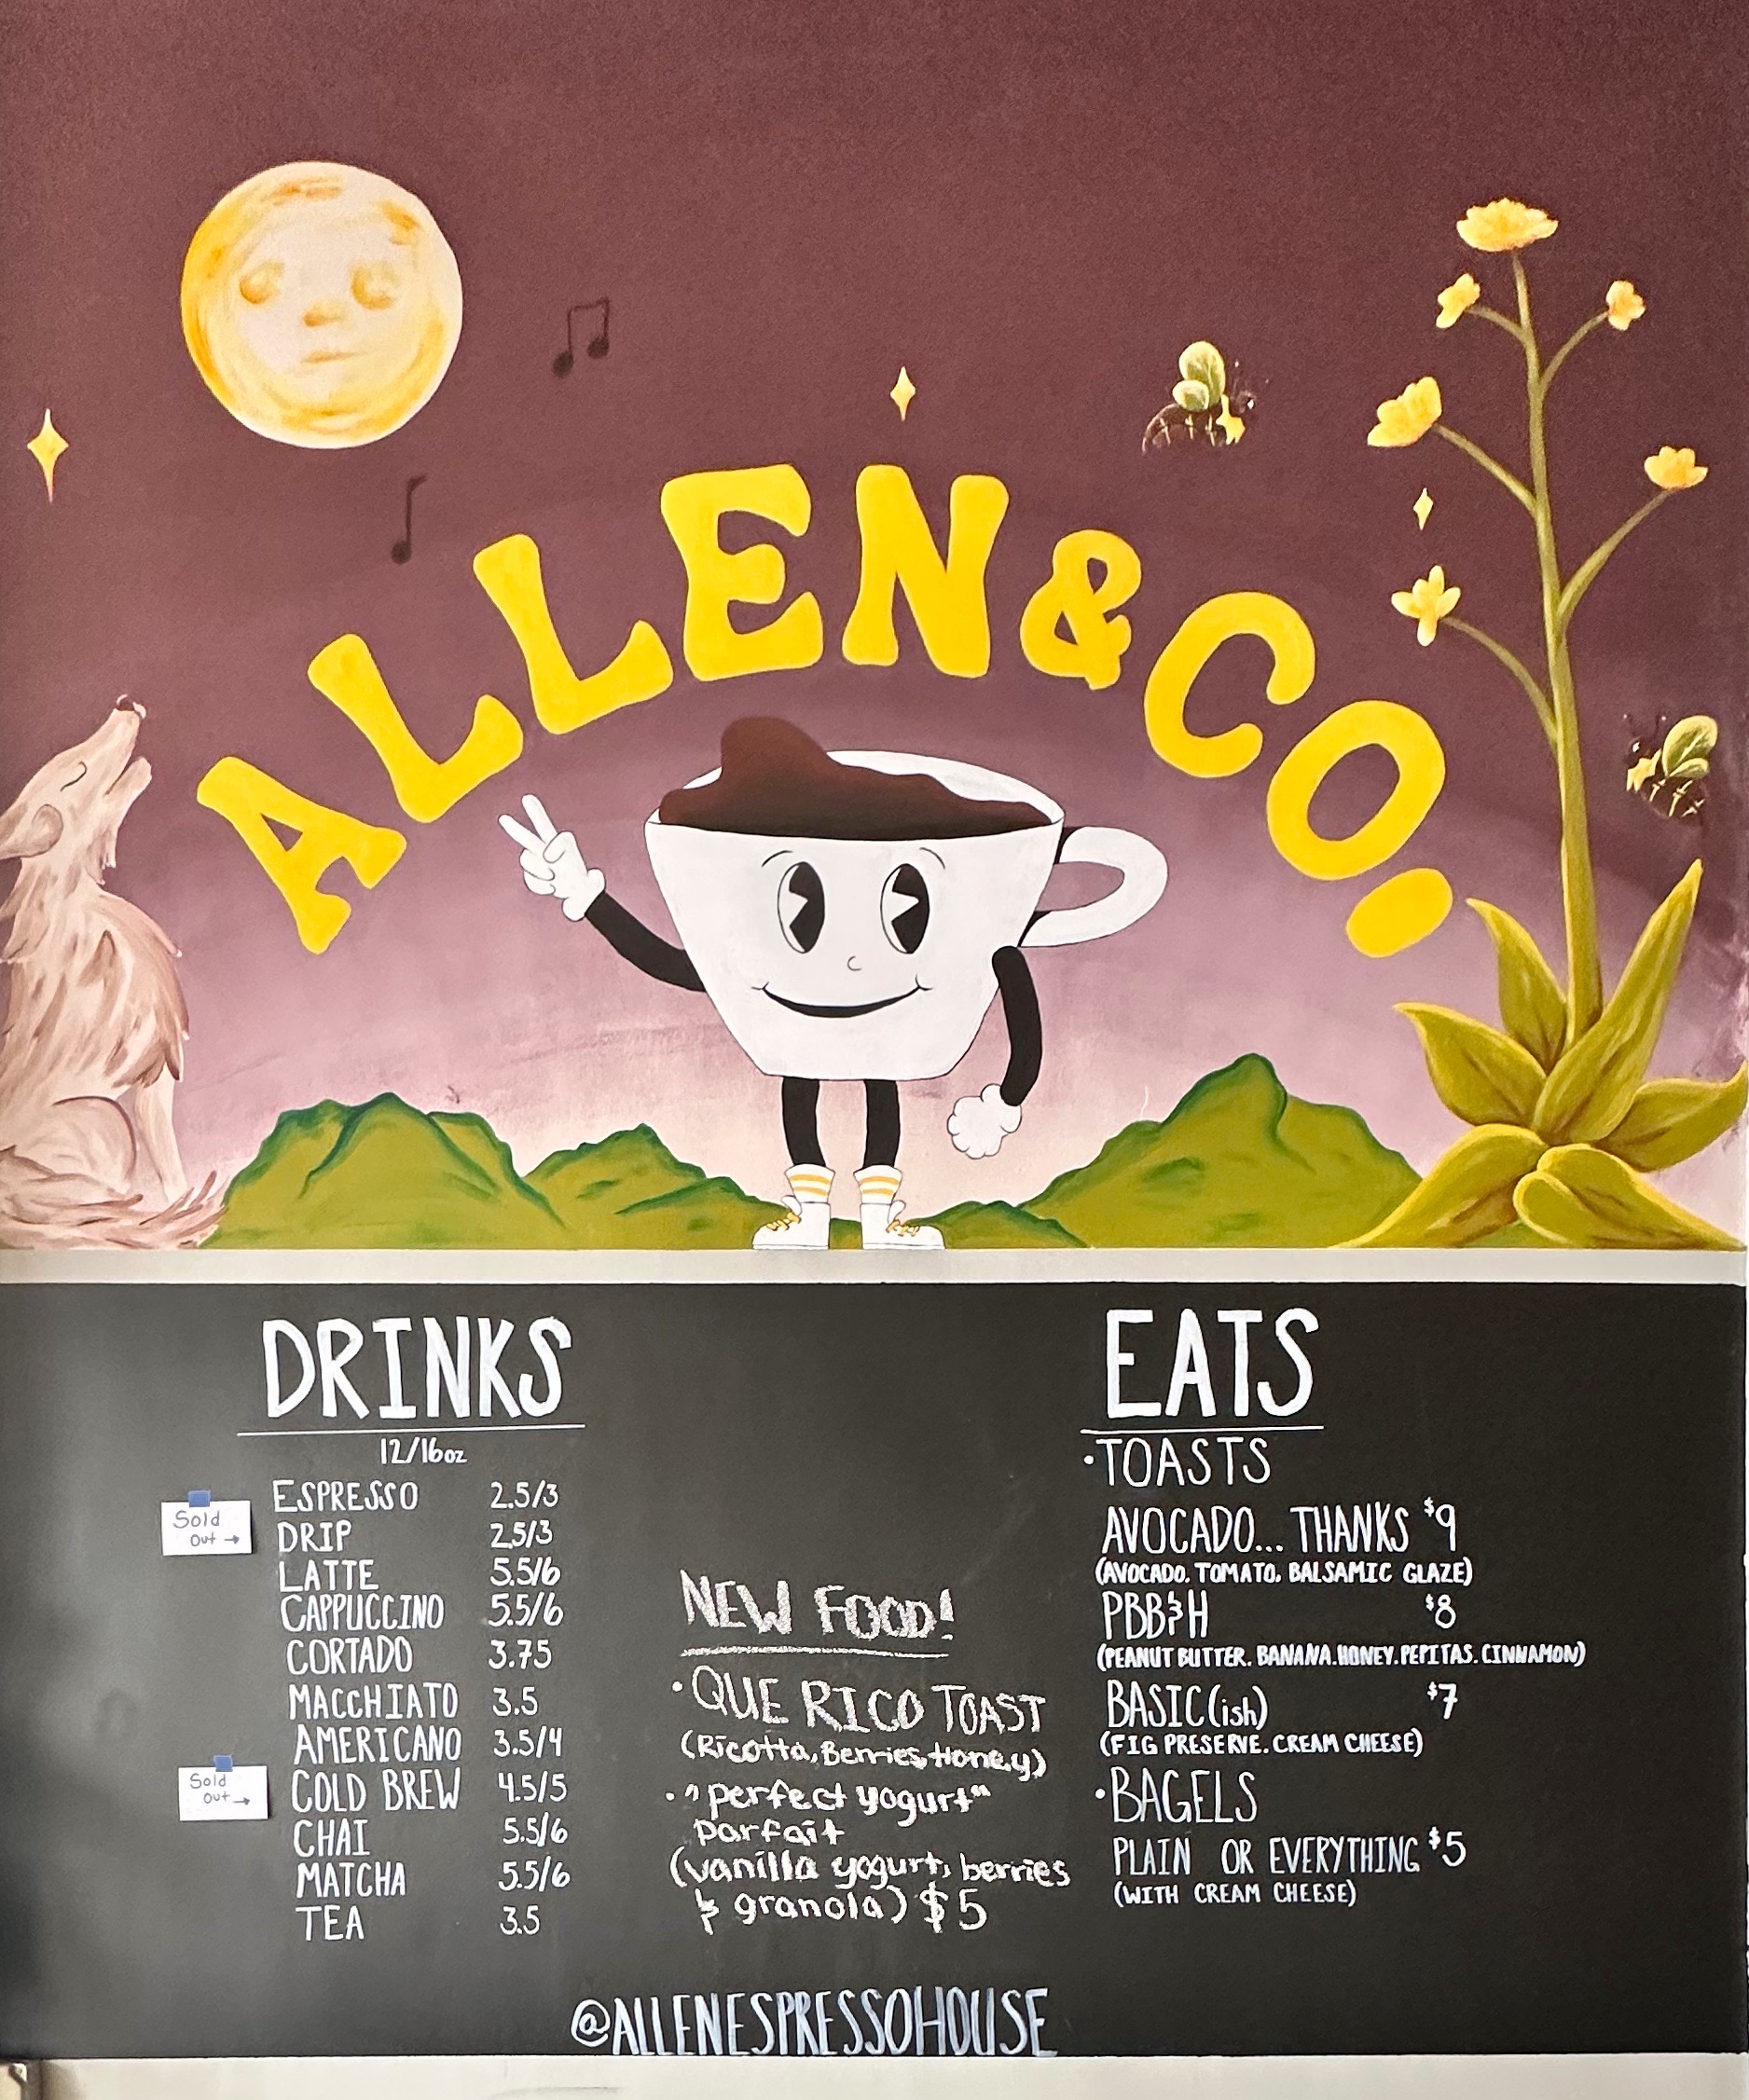 ALLEN&CO.
DRINKS
12/16oz
ESPRESSO 2.5/3
Sold
Out →
DRIP 2.5/3
LATTE 5.5/6
CAPPUCCINO 5.5/6
CORTADO 3.75
MACCHIATO 3.5
AMERICANO 3.5/4
Sold
Out →
COLD BREW 4.5/5
CHAI 5.5/6
MATCHA 5.5/6
TEA 3.5
NEW FOOD!
• QUE RICO TOAST
(Ricotta, Berries, Honey)
• "perfect yogurt"
parfait
(vanilla yogurt, berries
& granola) $5
EATS
• TOASTS
AVOCADO... THANKS $9
(AVOCADO. TOMATO. BALSAMIC GLAZE)
PBB&H $8
(PEANUT BUTTER. BANANA. HONEY. PEPITAS. CINNAMON)
BASIC(ish) $7
(FIG PRESERVE. CREAM CHEESE)
• BAGELS
PLAIN OR EVERYTHING $5
(WITH CREAM CHEESE)
@ALLENESPRESSOHOUSE